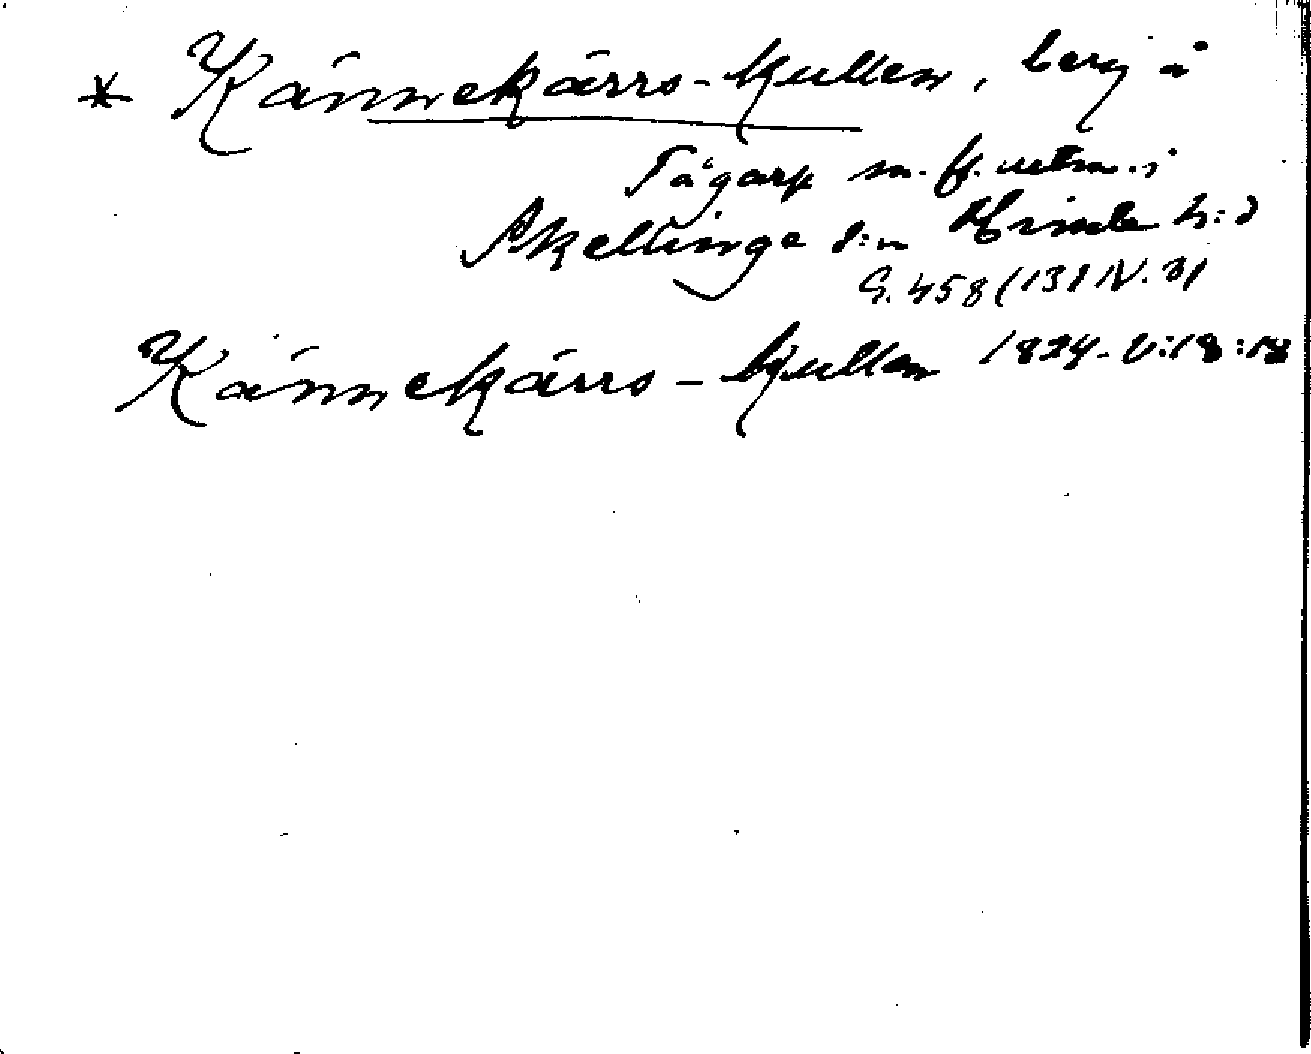 * Kännekärrs-kullen, berg å
Tågarp m. fl. utm. i
Skellinge s:n Himle h:d
G. 458 (131 IV. 3)
Kännekärrs-kullen 1824-U:18:18